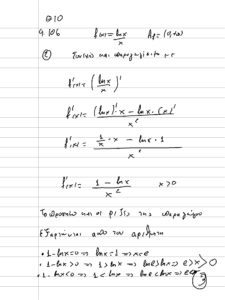 f(x) = lnx / x    Af = (0,+∞)
f'(x) = (lnx / x)'
f'(x) = ((lnx)' x - lnx · (x)') / x²
f'(x) = (1/x · x - lnx · 1) / x²
f'(x) = (1 - lnx) / x²    x>0
Το πρόσημο και οι ρίζες της παραγώγου
εξαρτώνται από τον αριθμητή
· 1-lnx=0 ⇒ lnx=1 ⇒ x=e
· 1-lnx>0 ⇒ 1>lnx ⇒ lne>lnx ⇒ e>x>0
· 1-lnx<0 ⇒ 1<lnx ⇒ lne<lnx ⇒ e<x